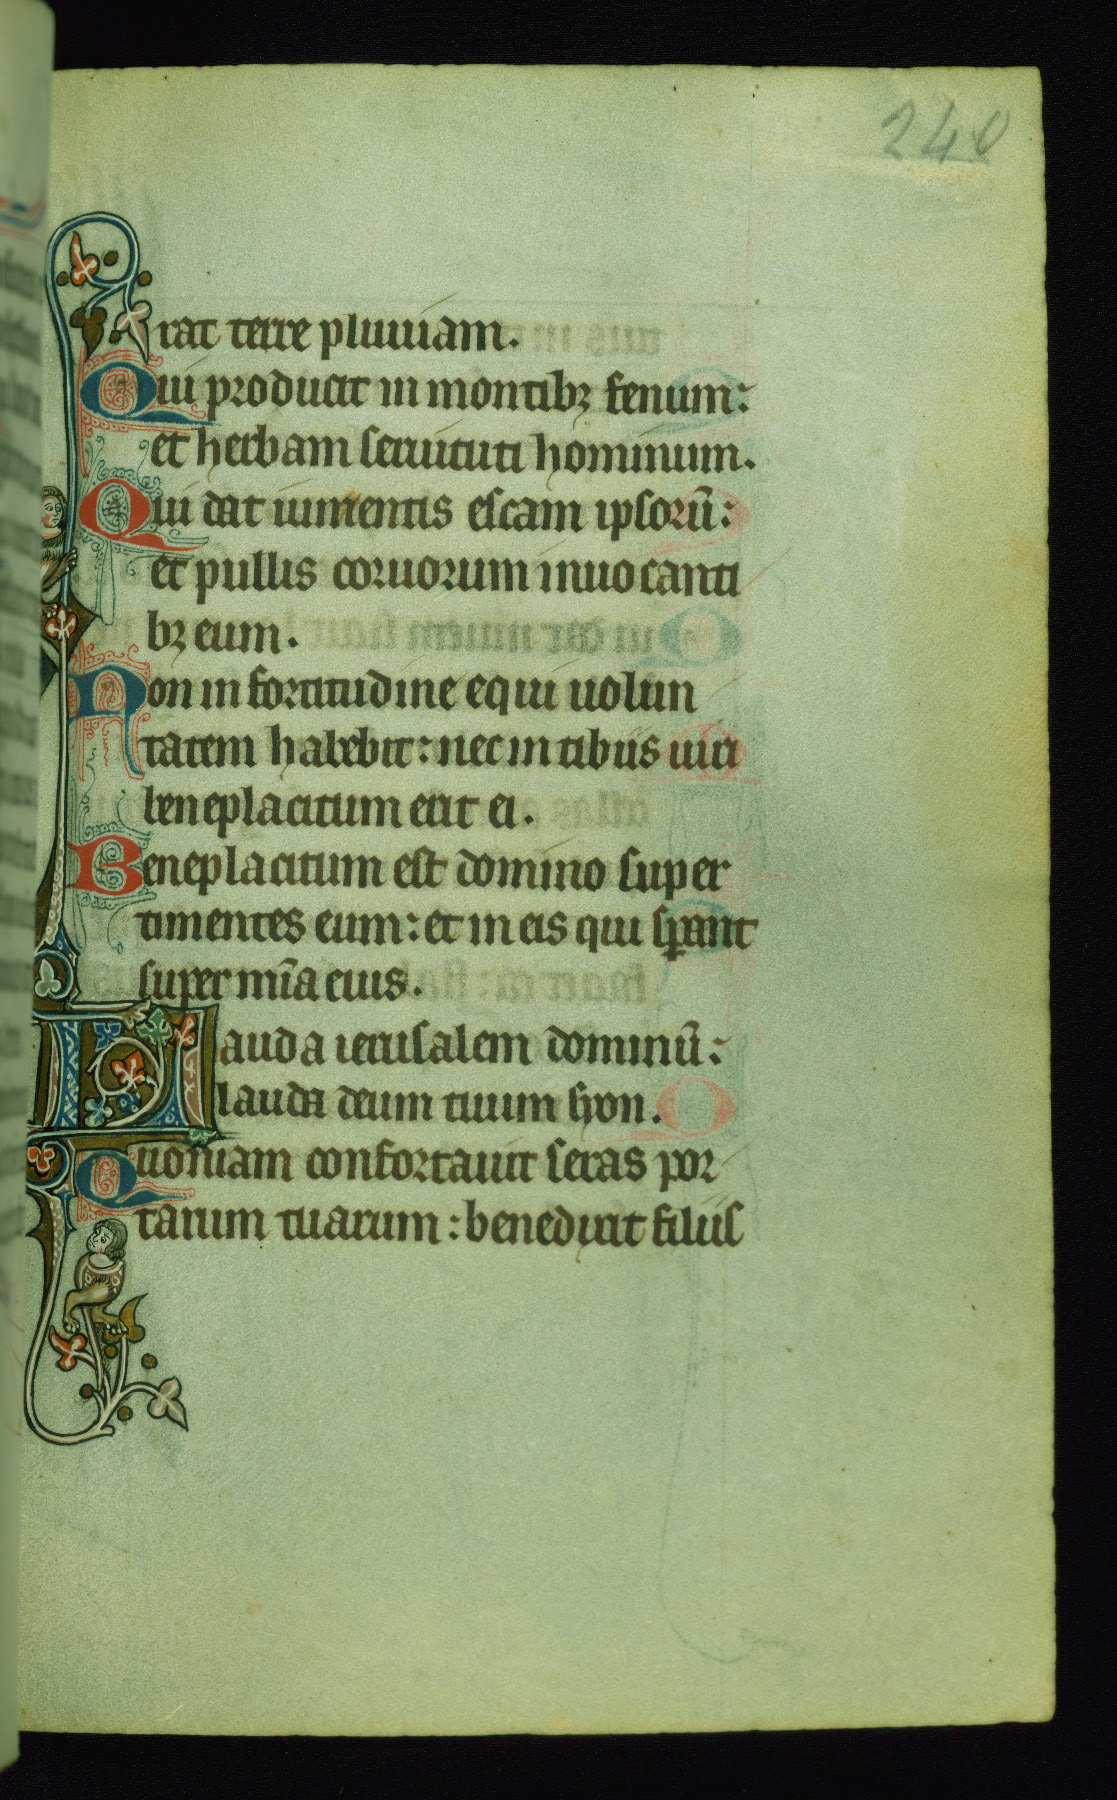 240
rat terre pluuiam.
Qui producit in montibꝫ fenum:
et herbam seruituti hominum.
Qui dat iumentis escam ipsorū:
et pullis coruorum inuocanti
bꝫ eum.
Non in fortitudine equi uolun
tatem habebit: nec in tibiis uiri
beneplacitum erit ei.
Beneplacitum est domino super
timentes eum: et in eis qui sꝑant
super mīa eius.
Lauda ierusalem dominū:
lauda deum tuum syon.
Quoniam confortauit seras por
tarum tuarum: benedixit filiis